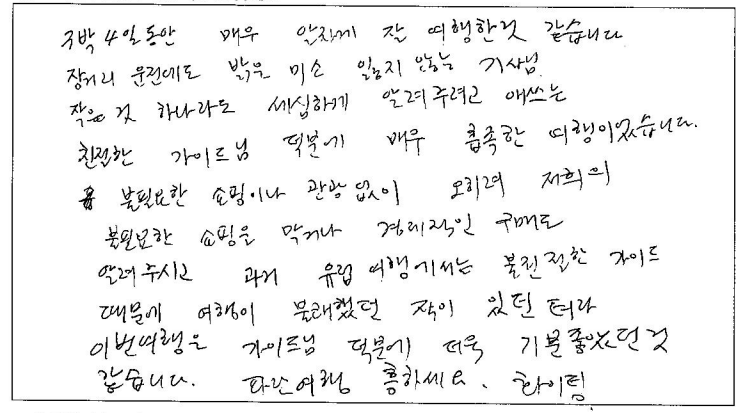 3박 4일동안 매우 알차게 잘 여행한것 같습니다
장거리 운전에도 밝은 미소 잃지 않는 기사님
작은 것 하나라도 세심하게 알려주려고 애쓰는
친절한 가이드님 덕분에 매우 흡족한 여행이었습니다.
불필요한 쇼핑이나 관광없이 오히려 저희의
불필요한 쇼핑을 막거나 경제적인 구매도
알려주시고 과거 유럽여행에서는 불친절한 가이드
때문에 여행이 불쾌했던 적이 있던 터라
이번여행은 가이드님 덕분에 더욱 기분좋았던것
같습니다. 하세요. 화이팅